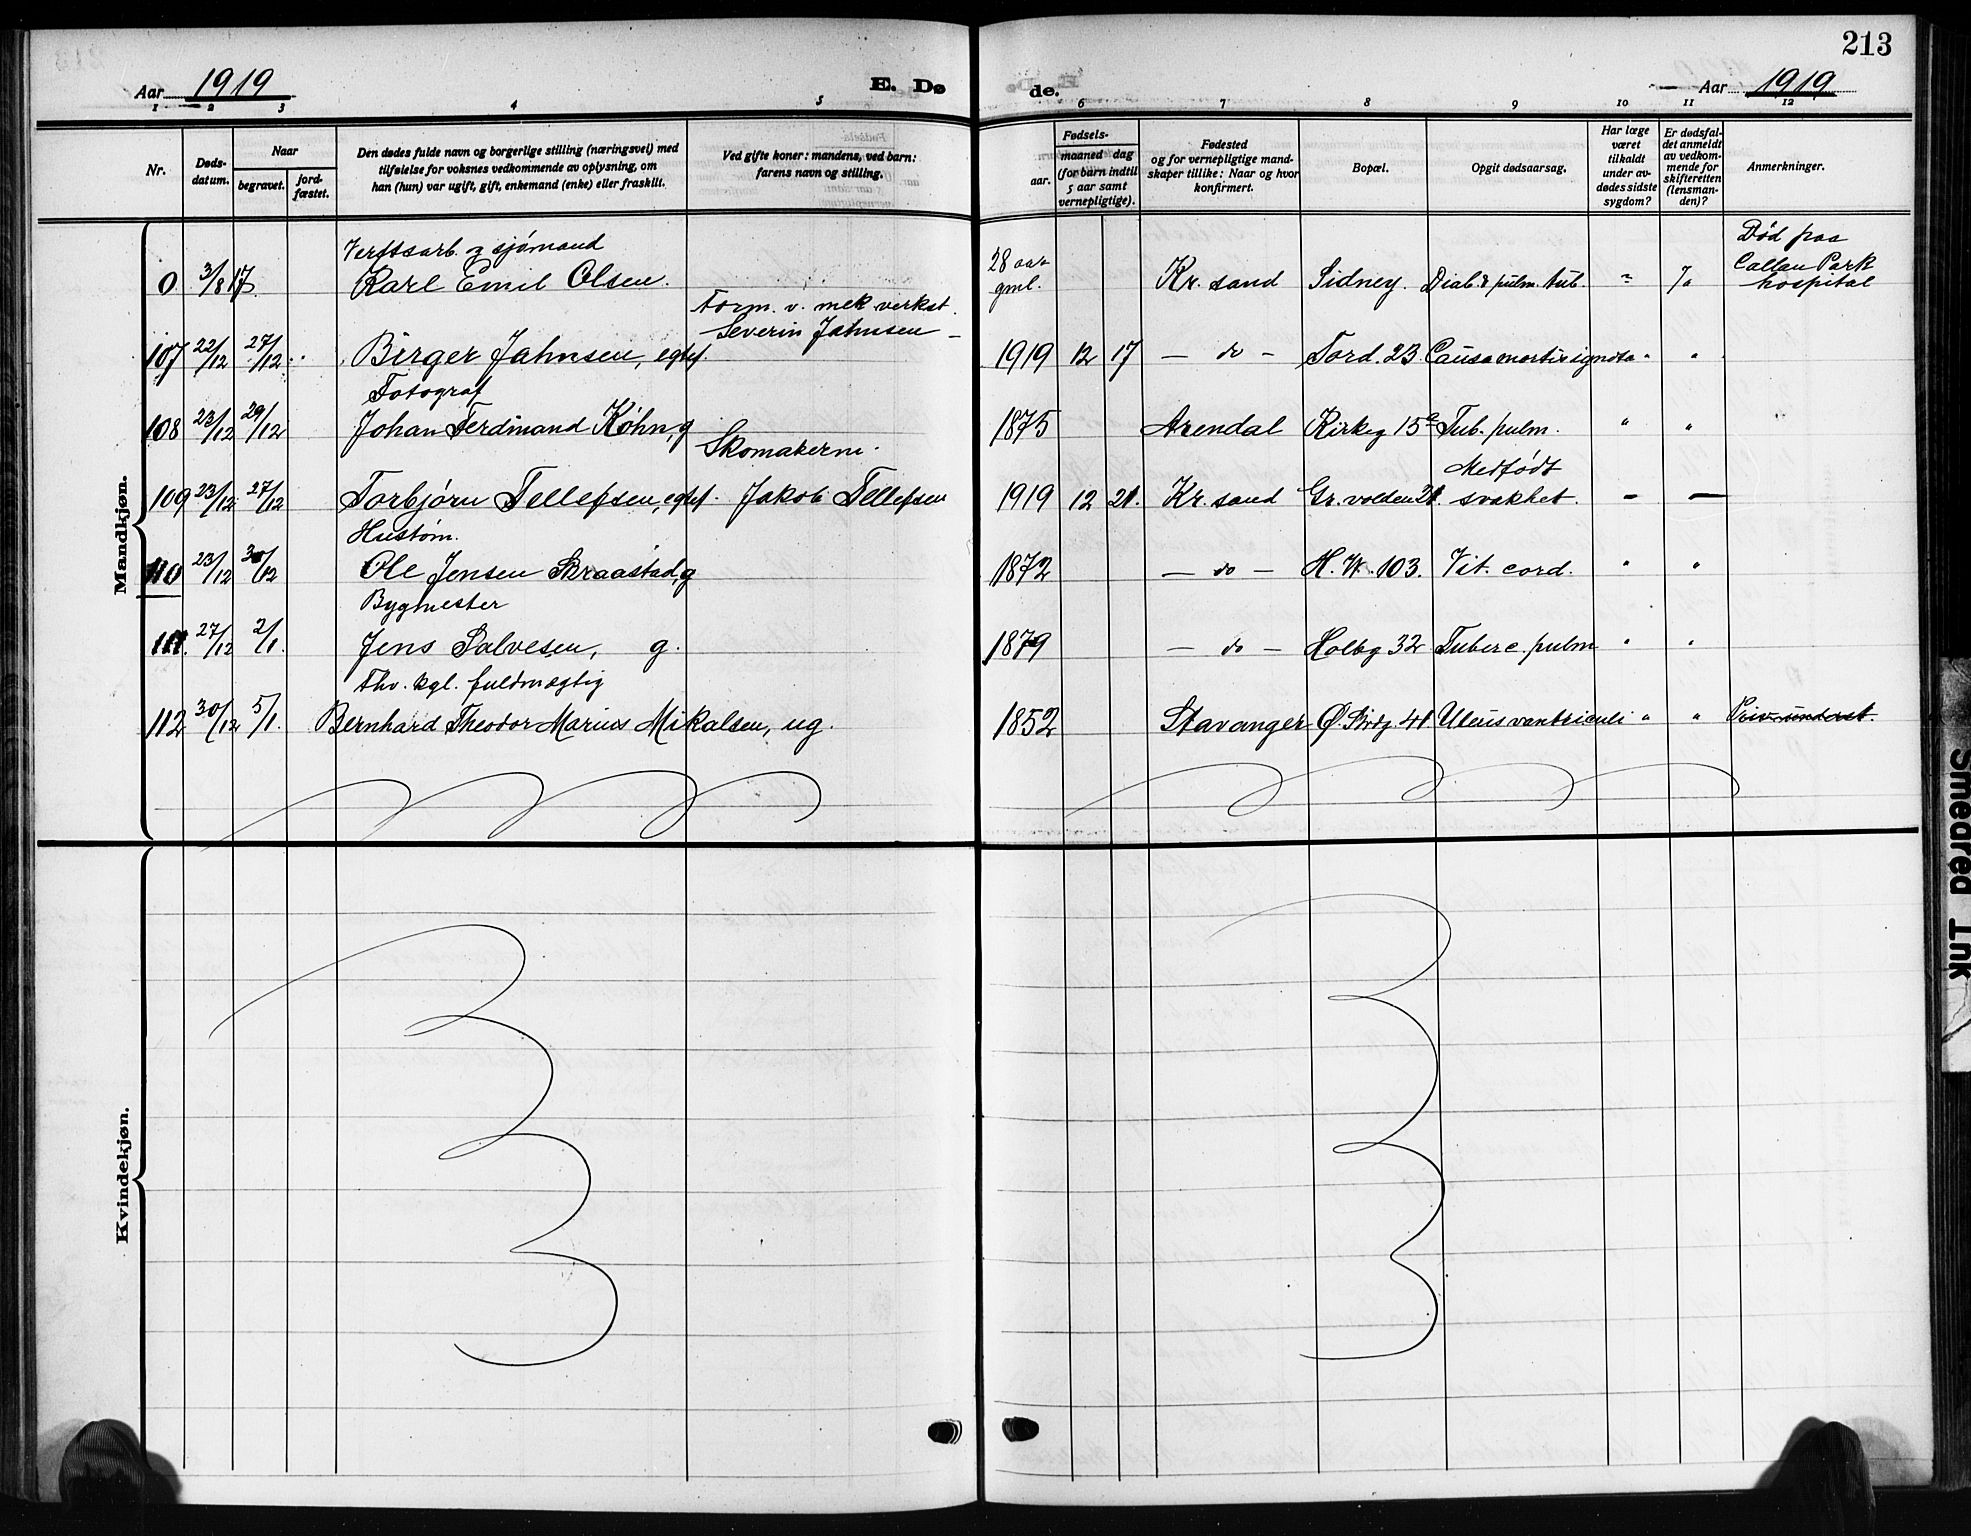 213
Aar 1919
E. Dø
de.
Aar 1919
1 2 3 4 5 6 7 8 9 10 11 12
Nr.
Døds-
datum.
Naar
begravet.
jord-
fæstet.
Den dødes fulde navn og borgerlige stilling (næringsvei) med
tilføielse for voksnes vedkommende av oplysning, om
han (hun) var ugift, gift, enkemand (enke) eller fraskilt.
Ved gifte koner: mandens, ved barn:
farens navn og stilling.
Fødsels-
aar.
maaned dag
(for barn indtil
5 aar samt
vernepligtige).
Fødested
og for vernepligtige mand-
skaper tillike: Naar og hvor
konfirmert.
Bopæl.
Opgit dødsaarsag.
Har læge
været
tilkaldt
under av-
dødes sidste
sygdom?
Er dødsfal-
det anmeldt
av vedkom-
mende for
skifteretten
(lensman-
den)?
Anmerkninger.
Mandkjøn.
Verftsarb. & sjömand
0 3/8 17. Karl Emil Olsen. 28 aar gml. Kr. sand Sidney. Diab. & pulm. tub. " " Död paa Callan Park hospital
Form. v. mek verkst.
Severin Jahnsen
107 22/12 27/12 Birger Jahnsen, egtef. 1919 12 17 — do — Tord. 23. Causa mortis ignota " "
Fotograf
108 23/12 29/12 Johan Ferdinand Köhn, g 1875 Arendal Kirkeg 15 Tub. pulm. " "
Skomakerm.
109 23/12 27/12 Torbjörn Tellefsen, egtef. Jakob Tellefsen 1919 12 21. Kr. sand Gr. voldsen 21. Medfödt svakhet. — —
Hustöm.
110 23/12 30/12 Ole Jensen Skraastad, g 1872 — do — H. W. 103. Vit. cord. " "
Bygmester
111. 27/12 2/1. Jens Salvesen, g. 1879 — do — Holbg 32 Tuberc. pulm " "
Fhv. kgl. fuldmægtig
112 30/12 5/1. Bernhard Theodor Marius Mikalsen, ug. 1852 Stavanger Ø. Strdg 41 Ulcus ventriculi " " Priv. underst.
Kvindekjøn.
Smeared Ink